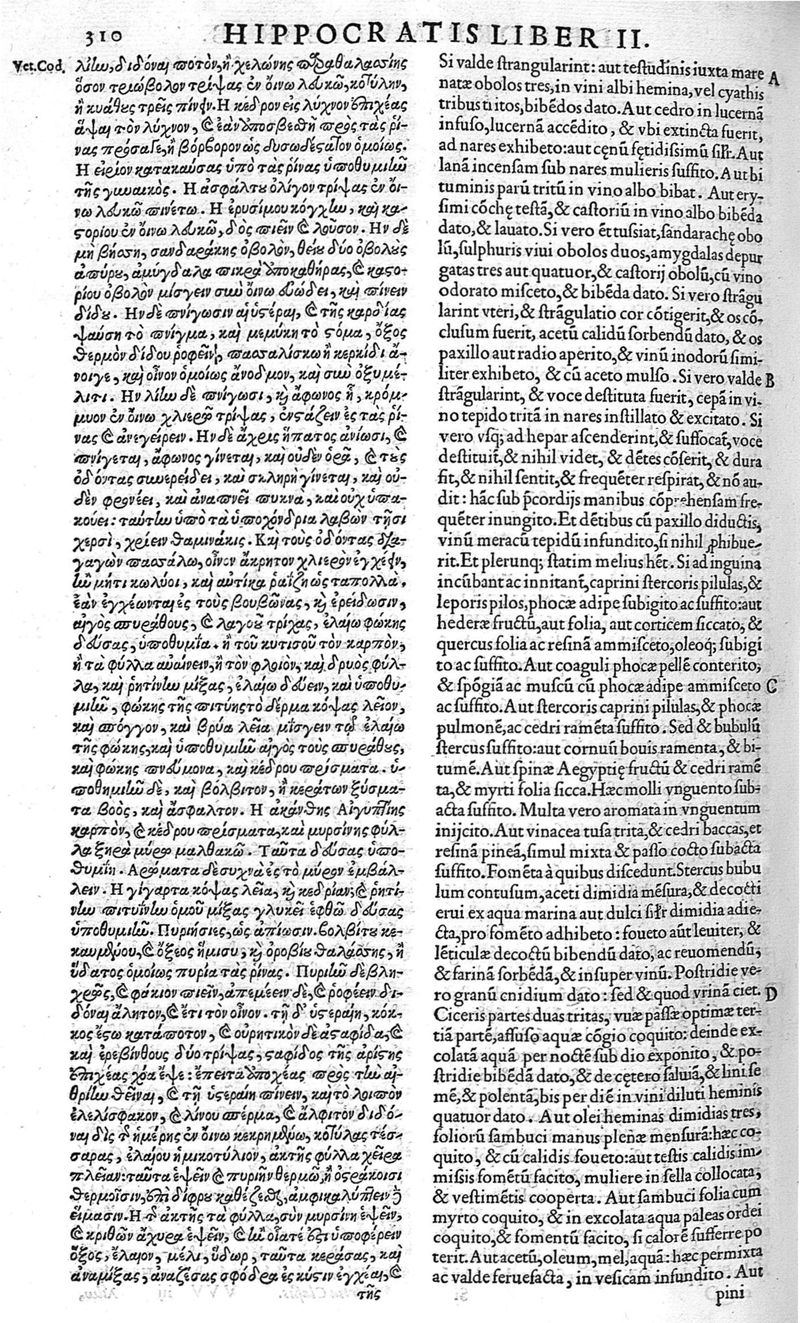 310 HIPPOCRATIS LIBER II.
Vet.Cod.
λίην, διδόναι ποτὸν, ἢ χελώνης παραθαλασσίης
ὅσον τριώβολον τρίψας ἐν οἴνῳ λευκῷ, κοτύλην,
ἢ κυάθους τρεῖς πίνειν. Η κέδρον εἰς λύχνον ἐπιχέας
ἅψαι τὸν λύχνον, καὶ ἐὰν ἀποσβεσθῇ πρὸς τὰς ῥῖ-
νας πρόσαγε, ἢ βόρβορον ὡς δυσωδέστατον ὁμοίως.
Η εἰρίον κατακαύσας ὑπὸ τὰς ῥῖνας ὑποθυμιῶν
τῆς γυναικός. Η ἀσφάλτου ὀλίγον τρίψας ἐν οἴ-
νῳ λευκῷ πινέτω. Η ἐρυσίμου κόγχῳ, καὶ κα-
στορίου ἐν οἴνῳ λευκῷ, δὸς πιεῖν καὶ λοῦσον. Ην δὲ
μὴ βήσσῃ, σανδαράκης ὀβολὸν, θείου δύο ὀβολοὺς
ἀπύρου, ἀμύγδαλα πικρὰ ἀποκαθήρας, καὶ καστο-
ρίου ὀβολὸν μίσγειν σὺν οἴνῳ εὐώδει, καὶ πίνειν
δίδου. Ην δὲ πνίγωσιν αἱ ὑστέραι, καὶ τῆς καρδίας
ψαύσῃ τὸ πνίγμα, καὶ μεμύκῃ τὸ στόμα, ὄξος
θερμὸν δίδου ῥοφεῖν, πασσαλίσκῳ ἢ κερκίδι ἄ-
νοιγε, καὶ οἶνον ὁμοίως ἄνοδμον, καὶ σὺν ὀξυμέ-
λιτι. Ην λίην δὲ πνίγωσι, καὶ ἄφωνος ᾖ, κρόμ-
μυον ἐν οἴνῳ χλιερῷ τρίψας, ἐνστάζειν ἐς τὰς ῥῖ-
νας καὶ ἀνεγείρειν. Ην δὲ ἄχρις ἥπατος ἀνίωσι, καὶ
πνίγεται, ἄφωνος γίνεται, καὶ οὐδὲν ὁρᾷ, καὶ τοὺς
ὀδόντας συνερείδει, καὶ σκληρὴ γίνεται, καὶ οὐ-
δὲν φρονέει, καὶ ἀναπνεῖ πυκνὰ, καὶ οὐχ ὑπα-
κούει: ταύτην ὑπὸ τὰ ὑποχόνδρια λαβὼν τῇσι
χερσὶ, χρίειν θαμινάκις. Καὶ τοὺς ὀδόντας δια-
γαγὼν πασσάλῳ, οἶνον ἄκρητον χλιερὸν ἐγχεῖν,
ἢν μή τι κωλύοι, καὶ αὐτίκα ῥαΐζῃ ὡς τὰ πολλά.
ἐὰν ἐγχέωνται ἐς τοὺς βουβῶνας, καὶ ἐρείδωσιν,
αἰγὸς σπυράθους, καὶ λαγοῦ τρίχας, ἐλαίῳ φώκης
δεύσας, ὑποθυμία. ἢ τοῦ κυτισοῦ τὸν καρπὸν,
ἢ τὰ φύλλα αὐαίνειν, ἢ τὸν φλοιὸν, καὶ δρυὸς φύλ-
λα, καὶ ῥητίνην μίξας, ἐλαίῳ δεύειν, καὶ ὑποθυ-
μιῶν, φώκης τῆς πιτύης τὸ δέρμα κόψας λεῖον,
καὶ σπόγγον, καὶ βρύα λεῖα μίσγειν τῷ ἐλαίῳ
τῆς φώκης, καὶ ὑποθυμιῶν αἰγὸς τοὺς σπυράθους,
καὶ φώκης πνεύμονα, καὶ κέδρου πρίσματα. ὑ-
ποθημιῶν δὲ, καὶ βόλβιτον, ἢ κεράτων ξύσμα-
τα βοὸς, καὶ ἄσφαλτον. Η ἀκάνθης Αἰγυπτίης
καρπὸν, καὶ κέδρου πρίσματα, καὶ μυρσίνης φύλ-
λα ξηρὰ μύρῳ μαλθακῷ. Ταῦτα δεύσας ὑπο-
θυμιῇν. Αρώματα δὲ συχνὰ ἐς τὸ μύρον ἐμβάλ-
λειν. Η γίγαρτα κόψας λεῖα, καὶ κεδρίαν, καὶ ῥητί-
νην πιτυΐνην ὁμοῦ μίξας γλυκεῖ ἑφθῷ δεύσας
ὑποθυμιῶν. Πυριήσιες, ὡς ἀπίωσιν. βολβίτου κε-
καυμένου, καὶ ὄξεος ἥμισυ, καὶ ὀροβίου θαλάσσης, ἢ
ὕδατος ὁμοίως πυρία τὰς ῥῖνας. Πυριῶν δὲ βλη-
χρῶς, καὶ φάκιον πιεῖν, ἀπεμέειν δὲ, καὶ ῥοφέειν δι-
δόναι ἄλητον, καὶ ἔτι τὸν οἶνον. τῇ δ' ὑστεραίῃ, κόκ-
κος ἔσω κατάποτον, καὶ οὐρητικὸν δὲ ἀσταφίδα, καὶ
καὶ ἐρεβίνθους δύο τρίψας, σταφίδος τῆς ἀρίστης
ἐπιχέας χόα ἕψε: ἔπειτα ἀποχέας πρὸς τὴν αἰ-
θρίην θεῖναι, καὶ τῇ ὑστεραίῃ πίνειν, καὶ τὸ λοιπὸν
ἐλελίσφακον, καὶ λίνου σπέρμα, καὶ ἄλφιτον διδό-
ναι δὶς τῆς ἡμέρης ἐν οἴνῳ κεκρημένῳ, κοτύλας τέσ-
σαρας, ἐλαίου ἡμικοτύλιον, ἀκτῆς φύλλα χεῖρα
πλείαν: ταῦτα ἑψεῖν καὶ πυριῇν θερμῷ, ἢ ὀστράκοισι
θερμοῖσιν, ἐπὶ δίφρου καθέζεσθαι, ἀμφικαλύπτειν δὲ
εἵμασιν. Η τῆς ἀκτῆς τὰ φύλλα, σὺν μυρσίνῃ ἑψεῖν,
καὶ κριθῶν ἄχυρα ἑψεῖν, καὶ ἢν οἷά τε ἔῃ ὑποφέρειν
ὄξος, ἔλαιον, μέλι, ὕδωρ, ταῦτα κεράσας, καὶ
ἀναμίξας, ἀναζέσας σφόδρα ἐς κύστιν ἐγχέαι, καὶ
τῆς
Si valde strangularint: aut testudinis iuxta mare A
natæ obolos tres, in vini albi hemina, vel cyathis
tribus tritos, bibẽdos dato. Aut cedro in lucernã
infuso, lucernã accẽdito, & vbi extincta fuerit,
ad nares exhibeto: aut cęnũ fętidissimũ sil'r. Aut
lanã incensam sub nares mulieris suffito. Aut bi
tuminis parũ tritũ in vino albo bibat. Aut ery-
simi cõchę testã, & castoriũ in vino albo bibẽda
dato, & lauato. Si vero ẽt tussiat, sandarachę obo
lũ, sulphuris viui obolos duos, amygdalas depur
gatas tres aut quatuor, & castorij obolũ, cũ vino
odorato misceto, & bibẽda dato. Si vero strãgu
larint vteri, & strãgulatio cor cõtigerit, & os cõ-
clusum fuerit, acetũ calidũ sorbendũ dato, & os
paxillo aut radio aperito, & vinũ inodorũ simi-
liter exhibeto, & cũ aceto mulso. Si vero valde B
strãgularint, & voce destituta fuerit, cepã in vi-
no tepido tritã in nares instillato & excitato. Si
vero vsq; ad hepar ascenderint, & suffocat, voce
destituit, & nihil videt, & dẽtes cõserit, & dura
fit, & nihil sentit, & frequẽter respirat, & nõ au-
dit: hãc sub p̃cordijs manibus cõprehensam fre-
quẽter inungito. Et dẽtibus cũ paxillo diductis,
vinũ meracũ tepidũ infundito, si nihil ꝓhibue-
rit. Et plerunq; statim melius hẽt. Si ad inguina
incũbant ac innitant, caprini stercoris pilulas, &
leporis pilos, phocæ adipe subigito ac suffito: aut
hederæ fructũ, aut folia, aut corticem siccato, &
quercus folia ac resinã ammisceto, oleoq; subigi
to ac suffito. Aut coaguli phocæ pellẽ conterito,
& spõgiã ac muscũ cũ phocæ adipe ammisceto C
ac suffito. Aut stercoris caprini pilulas, & phocæ
pulmonẽ, ac cedri ramẽta suffito. Sed & bubulũ
stercus suffito: aut cornuũ bouis ramenta, & bi-
tumẽ. Aut spinæ Aegyptię fructũ & cedri ramẽ
ta, & myrti folia sicca. Hæc molli vnguento sub-
acta suffito. Multa vero aromata in vnguentum
inijcito. Aut vinacea tusa trita, & cedri baccas, et
resinã pineã, simul mixta & passo cocto subacta
suffito. Fomẽta à quibus discedunt. Stercus bubu
lum contusum, aceti dimidia mẽsura, & decocti
erui ex aqua marina aut dulci sil'r dimidia adie-
cta, pro fomẽto adhibeto: foueto aũt leuiter, &
lẽticulæ decoctũ bibendũ dato, ac reuomendũ,
& farinã sorbẽdã, & insuper vinũ. Postridie ve-
ro granũ cnidium dato: sed & quod vrinã ciet. D
Ciceris partes duas tritas, vuæ passæ optimæ ter-
tiã partẽ, affuso aquæ cõgio coquito: deinde ex-
colatã aquã per noctẽ sub dio exponito, & po-
stridie bibẽdã dato, & de cętero saluiã, & lini se
mẽ, & polentã, bis per diẽ in vini diluti heminis
quatuor dato. Aut olei heminas dimidias tres,
foliorũ sambuci manus plenæ mensurã: hæc co-
quito, & cũ calidis foueto: aut testis calidis im-
missis fomẽtũ facito, muliere in sella collocata,
& vestimẽtis cooperta. Aut sambuci folia cum
myrto coquito, & in excolata aqua paleas ordei
coquito, & fomentũ facito, si calorẽ sufferre po
terit. Aut acetũ, oleum, mel, aquã: hæc permixta
ac valde feruefacta, in vesicam infundito. Aut
pini